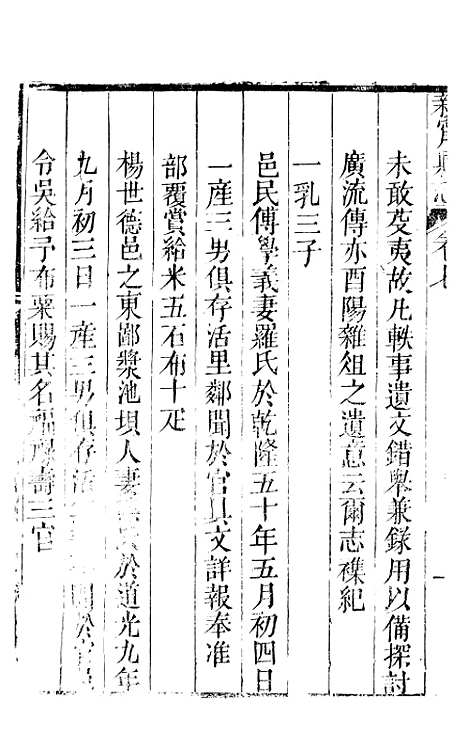 新寧縣志 卷七
未敢芟夷故凡軼事遺文錯舉兼錄用以備探討
廣流傳亦酉陽雜俎之遺意云爾志襍紀
一乳三子
邑民傅學義妻羅氏於乾隆五十年五月初四日
一產三男俱存活里鄰聞於官具文詳報奉准
部覆賞給米五石布十疋
楊世德邑之東鄙漿池壩人妻 氏於道光九年
九月初三日一產三男俱存活 聞於官邑
令吳給予布粟賜其名 壽三官